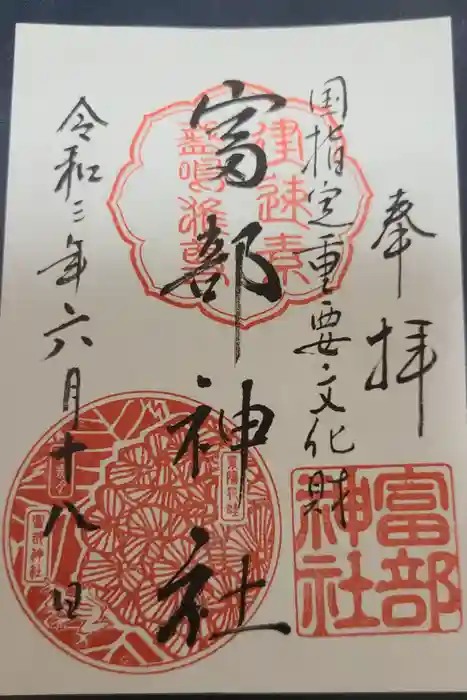 奉拝
国指定重要文化財
富部神社
令和三年六月十八日
建速素
盞嗚雅尊
富部神社
富部神社